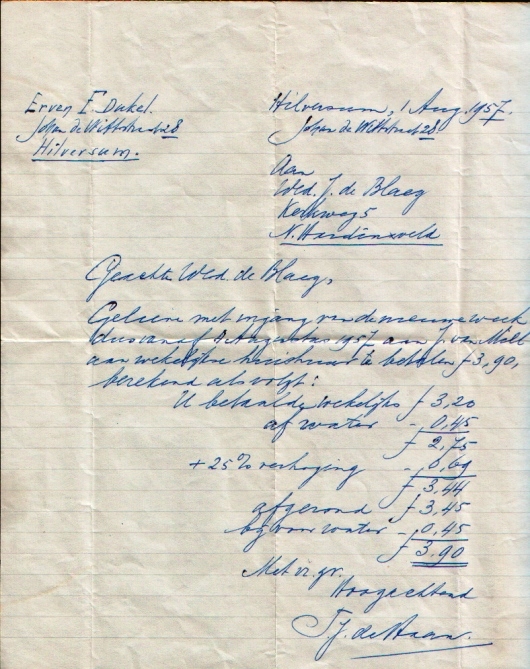 Erven E. Dukel.
Johan de Wittstraat 28
Hilversum.
Hilversum, 1 Aug. 1957.
Johan de Wittstraat 28.
Aan
Wed. J. de Blaey
Kerkweg 5
N. Hardinxveld
Geachte Wed. de Blaey,
Gelieve met ingang van de nieuwe week
dus vanaf Augustus 1957 aan J. van Mill
aan wekelijkse huishuur te betalen f 3,90,
berekend als volgt:
U betaalde wekelijks f 3,20
af water - 0,45
f 2,75
+ 25% verhoging - 0,69
f 3,44
afgerond f 3,45
bij voor water - 0,45
f 3.90
Met vr. gr.
Hoogachtend
J. de Haan.